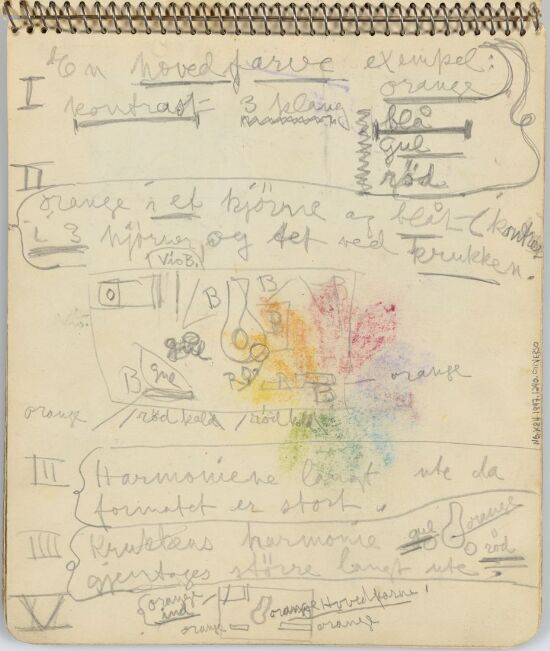 I En hovedfarve exempel:
orange
kontrast 3 klang
blå
gul
rød
II
orange i et hjørne og blåt (kontrast
i 3 hjørner og tet ved krukken.
VioB.
O B B B
B
gule
gul
B B B
orange
orange rødkald rødkald
III Harmoniene langt ute da
formatet er stort.
IIII Krukkens harmonie
gul orange
rød
gjentages større langt ute
V orange
ind
orange Hovedfarve!
orange orange
NG.K&H.1997.1240.011VERSO